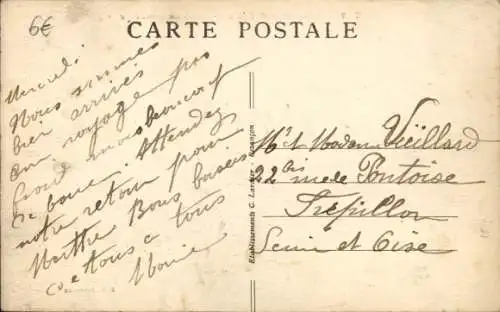 6€
CARTE POSTALE
Mercredi
Nous sommes
bien arrivés
en voyage pas
froid mais beaucoup
de boue. Attendez
notre retour pour
Marthe Bons baisers
de tous a tous
Etablissements C. Lardier - Besançon
Mr et Madame Vieillard
22 bis rue de Pontoise
Frépillon
Seine et Oise